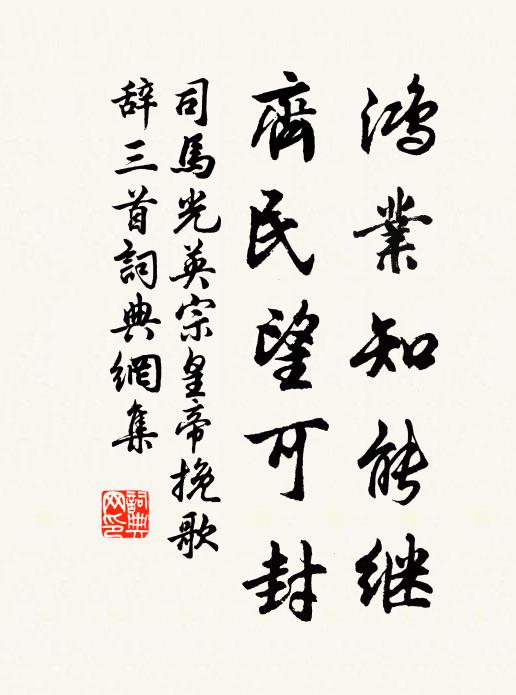 鸿業知能継
齊民望可封
司馬光英宗皇帝挽歌
辞三首詞典網集
詞典网印